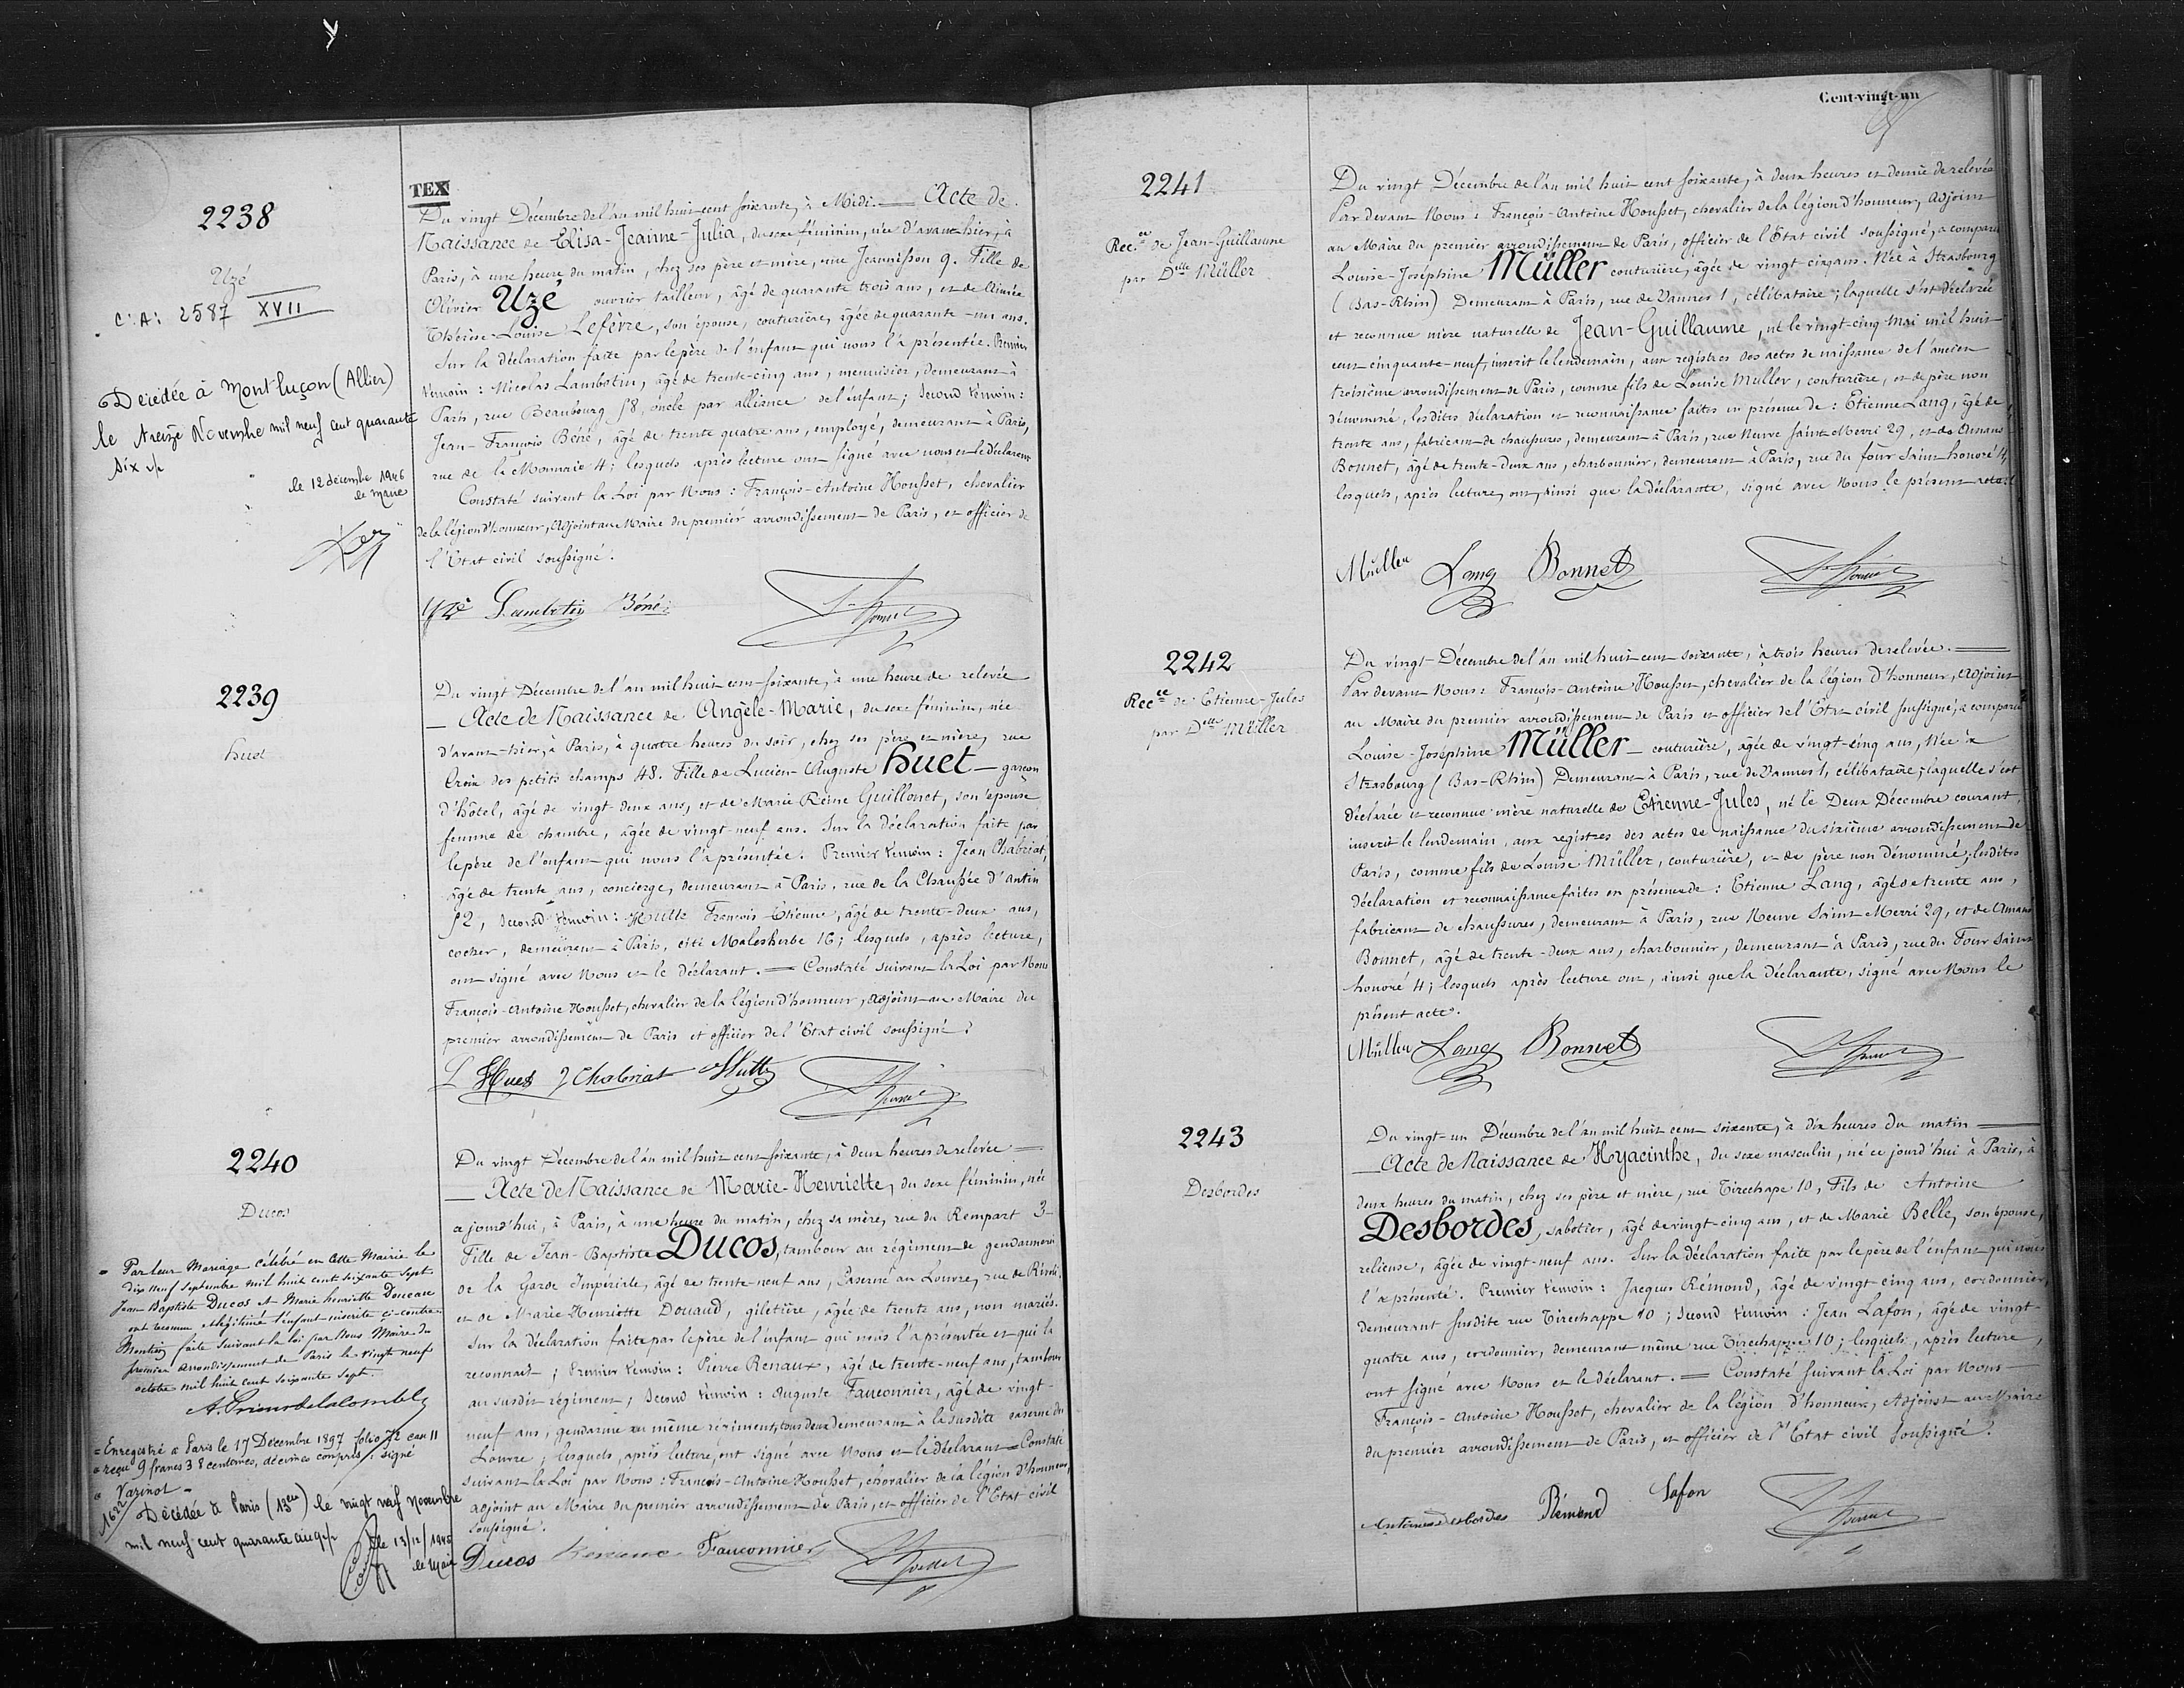 Y
TEX
2238
Uzé
C. A: 2587 XVII
Décédée à Montluçon (Allier)
le treize Novembre mil neuf cent quarante
six
le 12 décembre 1946
le maire
Du vingt Décembre de l'an mil huit cent soixante, à Midi. — Acte de
Naissance de Elisa-Jeanne-Julia, du sexe féminin, née d'avant-hier, à
Paris, à une heure du matin, chez ses père et mère, rue Jeannisson 9. Fille de
Olivier Uzé ouvrier tailleur, âgé de quarante trois ans, et de Aimée
Thérèse-Louise Lefèvre, son épouse, couturière, âgée de quarante-un ans.
Sur la déclaration faite par le père de l'enfant qui nous l'a présentée. Premier
témoin: Nicolas Lambotin, âgé de trente-cinq ans, menuisier, demeurant à
Paris, rue Beaubourg 58, oncle par alliance de l'enfant; second témoin:
Jean-François Béné, âgé de trente quatre ans, employé, demeurant à Paris,
rue de la Monnaie 4; lesquels après lecture ont signé avec nous et le déclarant
Constaté suivant la Loi par Nous: François-Antoine Housset, chevalier
de la légion d'honneur, Adjoint au Maire du premier arrondissement de Paris, et officier de
l'Etat civil soussigné.
Uzé Lambotin Béné
2239
huet
Du vingt Décembre de l'an mil huit cent soixante, à une heure de relevée
— Acte de Naissance de Angèle-Marie, du sexe féminin, née
d'avant-hier, à Paris, à quatre heures du soir, chez ses père et mère, rue
Croix des petits champs 48. Fille de Lucien-Auguste huet — garçon
d'hôtel, âgé de vingt-deux ans, et de Marie Reine Guillonet, son épouse
femme de chambre, âgée de vingt-neuf ans. Sur la déclaration faite par
le père de l'enfant qui nous l'a présentée. Premier témoin: Jean Chabriat,
âgé de trente ans, concierge, demeurant à Paris, rue de la Chaussée d'antin
52, second témoin: Hutte François-Etienne, âgé de trente-deux ans,
cocher, demeurant à Paris, cité Malesherbe 16; lesquels, après lecture,
ont signé avec Nous et le déclarant. — Constaté suivant la Loi par Nous
François-Antoine Housset, chevalier de la légion d'honneur, adjoint au Maire du
premier arrondissement de Paris et officier de l'Etat civil soussigné.
L Huet J Chabriat Hutte
2240
Ducos
= Par leur Mariage célébré en cette Mairie le
dix neuf septembre mil huit cent soixante sept
Jean Baptiste Ducos et Marie henriette Doueau
ont reconnu et légitimé l'enfant inscrite ci-contre
Mention faite suivant la loi par Nous Maire du
premier arrondissement de Paris le vingt neuf
octobre mil huit cent soixante sept.
= Enregistré à Paris le 17 Décembre 1897 folio 72 case 11
= reçu 9 francs 38 centimes, décimes compris: signé
= Varinot -
1622
Décédée à Paris (13e) le vingt neuf novembre
mil neuf cent quarante cinq
le 13/12/1945
le Maire
Du vingt Décembre de l'an mil huit cent soixante, à deux heures de relevée —
— Acte de Naissance de Marie-Henriette, du sexe féminin, née
ce jourd'hui, à Paris, à une heure du matin, chez sa mère, rue du Rempart 3-
Fille de Jean-Baptiste Ducos, tambour au régiment de gendarmerie
de la Garde Impériale, âgé de trente-neuf ans, Caserné au Louvre, rue de Rivoli,
et de Marie Henriette Douaud, giletière, âgée de trente ans, non mariés.
Sur la déclaration faite par le père de l'enfant qui nous l'a présentée et qui la
reconnait; Premier témoin: Pierre Renaux, âgé de trente-neuf ans, tambour
au susdit régiment; Second témoin: Auguste Fauconnier, âgé de vingt-
neuf ans, gendarme au même régiment, tous deux demeurant à la susdite caserne du
Louvre; lesquels, après lecture, ont signé avec Nous et le déclarant = Constaté
suivant la Loi par Nous: François-Antoine Housset, chevalier de la légion d'honneur,
adjoint au Maire du premier arrondissement de Paris, et officier de l'Etat civil
soussigné.
Ducos Fauconnier
Cent-vingt-un
2241
Rec.ce de Jean-Guillaume
par Dlle Müller
Du vingt Décembre de l'an mil huit cent soixante, à deux heures et demie de relevée
Par devant Nous: François-Antoine Housset, chevalier de la légion d'honneur, Adjoint
au Maire du premier arrondissement de Paris, officier de l'Etat civil soussigné, a comparu
Louise-Joséphine Müller couturière, âgée de vingt cinq ans. Née à Strasbourg
(Bas-Rhin) Demeurant à Paris, rue de Vannes 1, célibataire; laquelle s'est déclarée
et reconnue mère naturelle de Jean-Guillaume, né le vingt-cinq Mai mil huit
cent cinquante-neuf, inscrit le lendemain, aux registres des actes de naissance de l'ancien
troisième arrondissement de Paris, comme fils de Louise Muller, couturière, et de père non
dénommé, lesdites déclaration et reconnaissance faites en présence de: Etienne Lang, âgé de
trente ans, fabricant de chaussures, demeurant à Paris, rue Neuve Saint-Merri 29, et de Amans
Bonnet, âgé de trente-deux ans, charbonnier, demeurant à Paris, rue du four Saint honoré 4,
lesquels, après lecture, ont, ainsi que la déclarante, signé avec Nous le présent acte.
Müller Lang Bonnet
2242
Rec.ce de Etienne-Jules
par Dlle Müller
Du vingt Décembre de l'an mil huit cent soixante, à trois heures de relevée. —
Par devant Nous: François-Antoine Housset, chevalier de la légion d'honneur, Adjoint
au Maire du premier arrondissement de Paris et officier de l'Etat civil soussigné, a comparu
Louise-Joséphine Müller — couturière, âgée de vingt-cinq ans, Née à
Strasbourg (Bas-Rhin) Demeurant à Paris, rue de Vannes 1, célibataire; laquelle s'est
déclarée et reconnue mère naturelle de Etienne-Jules, né le Deux Décembre courant,
inscrit le lendemain, aux registres des actes de naissance du sixième arrondissement de
Paris, comme fils de Louise Müller, couturière, et de père non dénommé; lesdites
déclaration et reconnaissance faites en présence de: Etienne Lang, âgé de trente ans,
fabricant de chaussures, demeurant à Paris, rue Neuve Saint-Merri 29, et de Amans
Bonnet, âgé de trente-deux ans, charbonnier, demeurant à Paris, rue du Four Saint
honoré 4; lesquels après lecture ont, ainsi que la déclarante, signé avec Nous le
présent acte.
Müller Lang Bonnet
2243
Desbordes
Du vingt-un Décembre de l'an mil huit cent soixante, à dix heures du matin —
— Acte de Naissance de Hyacinthe, du sexe masculin, né ce jourd'hui à Paris, à
deux heures du matin, chez ses père et mère, rue Tirechape 10, Fils de Antoine
Desbordes, sabotier, âgé de vingt-cinq ans, et de Marie Belle, son épouse,
relieuse, âgée de vingt-neuf ans. Sur la déclaration faite par le père de l'enfant qui nous
l'a présenté. Premier témoin: Jacques Rémond, âgé de vingt-cinq ans, cordonnier,
demeurant susdite rue Tirechappe 10; second témoin: Jean Lafon, âgé de vingt-
quatre ans, cordonnier, demeurant même rue Tirechappe 10; lesquels, après lecture,
ont signé avec Nous et le déclarant. — Constaté suivant la Loi par Nous
François-Antoine Housset, chevalier de la légion d'honneur, Adjoint au Maire
du premier arrondissement de Paris, et officier de l'Etat civil soussigné.
Antoine desbordes Rémond Lafon